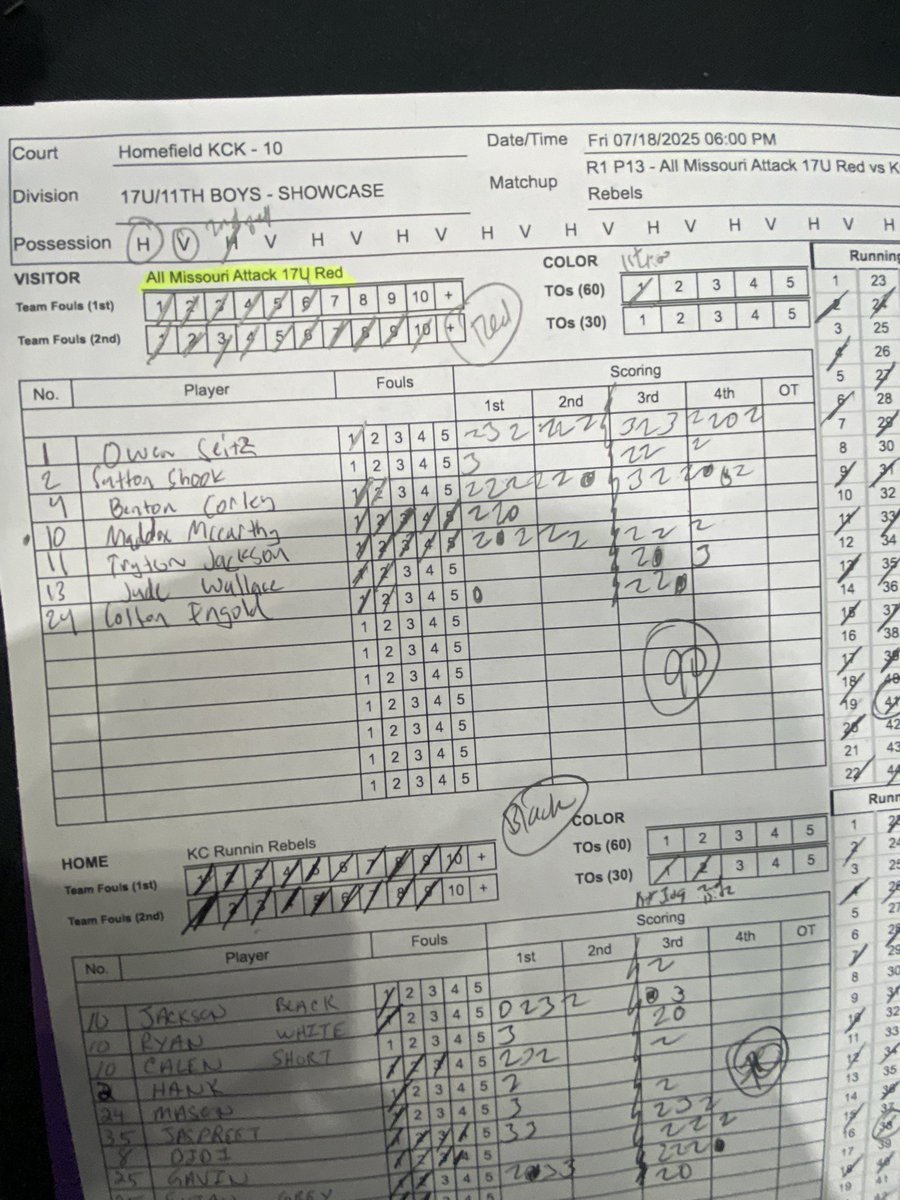 Court Homefield KCK - 10 Date/Time Fri 07/18/2025 06:00 PM
Division 17U/11TH BOYS - SHOWCASE Matchup R1 P13 - All Missouri Attack 17U Red vs K
Rebels
Possession H V H V H V H V H V H V H V H V H
VISITOR All Missouri Attack 17U Red COLOR
Team Fouls (1st) 1 2 3 4 5 6 7 8 9 10 + Red TOs (60) 1 2 3 4 5
Team Fouls (2nd) 1 2 3 4 5 6 7 8 9 10 + TOs (30) 1 2 3 4 5
No. Player Fouls Scoring
1st 2nd 3rd 4th OT
1 Owen Seitz 1 2 3 4 5 232 222 323 2202
2 Sutton Shook 1 2 3 4 5 3 22 2
4 Benton Corley 1 2 3 4 5 222 220
10 Maddox Mccarthy 1 2 3 4 5 220
11 Tryton Jackson 1 2 3 4 5 22 2
13 Jude Wallace 1 2 3 4 5 3
24 Colton 1 2 3 4 5 0 220
1 2 3 4 5
1 2 3 4 5
1 2 3 4 5
1 2 3 4 5
1 2 3 4 5
1 2 3 4 5
1 2 3 4 5
90
Running
1 23
2 24
3 25
4 26
5 27
6 28
7 29
8 30
9 31
10 32
11 33
12 34
13 35
14 36
15 37
16 38
17 39
18 40
19 41
20 42
21 43
22 44
HOME KC Runnin Rebels Black COLOR
Team Fouls (1st) 1 2 3 4 5 6 7 8 9 10 + TOs (60) 1 2 3 4 5
Team Fouls (2nd) 1 2 3 4 5 6 7 8 9 10 + TOs (30) 1 2 3 4 5
No. Player Fouls Scoring
1st 2nd 3rd 4th OT
10 JACKSON BLACK 1 2 3 4 5 2
10 RYAN WHITE 1 2 3 4 5 0232 3
10 CALEN SHORT 1 2 3 4 5 3 20
2 HANK 1 2 3 4 5 232 2
24 MASON 1 2 3 4 5 2
35 JASPREET 1 2 3 4 5 3 2
8 DJDJ 1 2 3 4 5 33
25 GAVIN 1 2 3 4 5 20
GREY
Runn
1
2 24
3 25
4 26
5 27
6 28
7 29
8 30
9 31
10 32
11 33
12 34
13 35
14 36
15 37
16 38
17 39
18 40
19 41